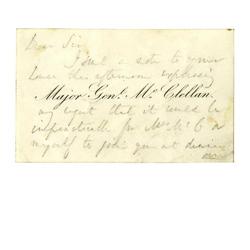 Dear Sir
I sent a note to your
house this afternoon expressing
Major Genl. Mc.Clellan.
my regret that it would be
impracticable for Mrs Mc C or
myself to join you at dinner